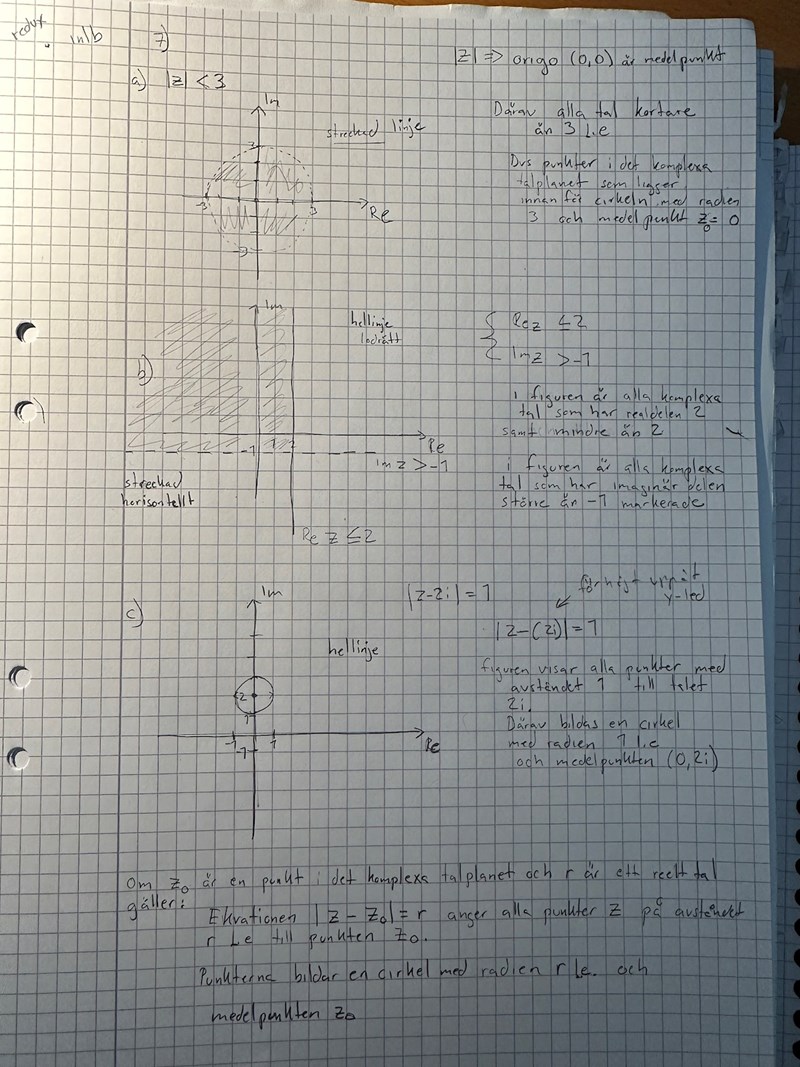 redux
. inlb
7)
|z| => origo (0,0) är medelpunkt
a) |z| < 3
Im
streckad linje
3
-3
3
Re
-3
Därav alla tal kortare
än 3 l.e
Dvs punkter i det komplexa
talplanet som ligger
innanför cirkeln med radien
3 och medelpunkt z₀ = 0
b)
Im
hellinje
lodrätt
Re z ≤ 2
Im z > -1
i figuren är alla komplexa
tal som har realdelen 2
samt mindre än 2
Re
-1
1
2
Im z > -1
streckad
horisontellt
Re z ≤ 2
i figuren är alla komplexa
tal som har imaginärdelen
större än -1 markerade
c)
Im
hellinje
2
1
-1
1
-1
Re
|z-2i| = 1
uppåt
y-led
|z-(2i)| = 1
figuren visar alla punkter med
avståndet 1 till talet
2i.
Därav bildas en cirkel
med radien 1 l.e
och medelpunkten (0,2i)
Om z₀ är en punkt i det komplexa talplanet och r är ett reellt tal
gäller:
Ekvationen |z - z₀| = r anger alla punkter z på avståndet
r l.e till punkten z₀.
Punkterna bildar en cirkel med radien r l.e. och
medelpunkten z₀